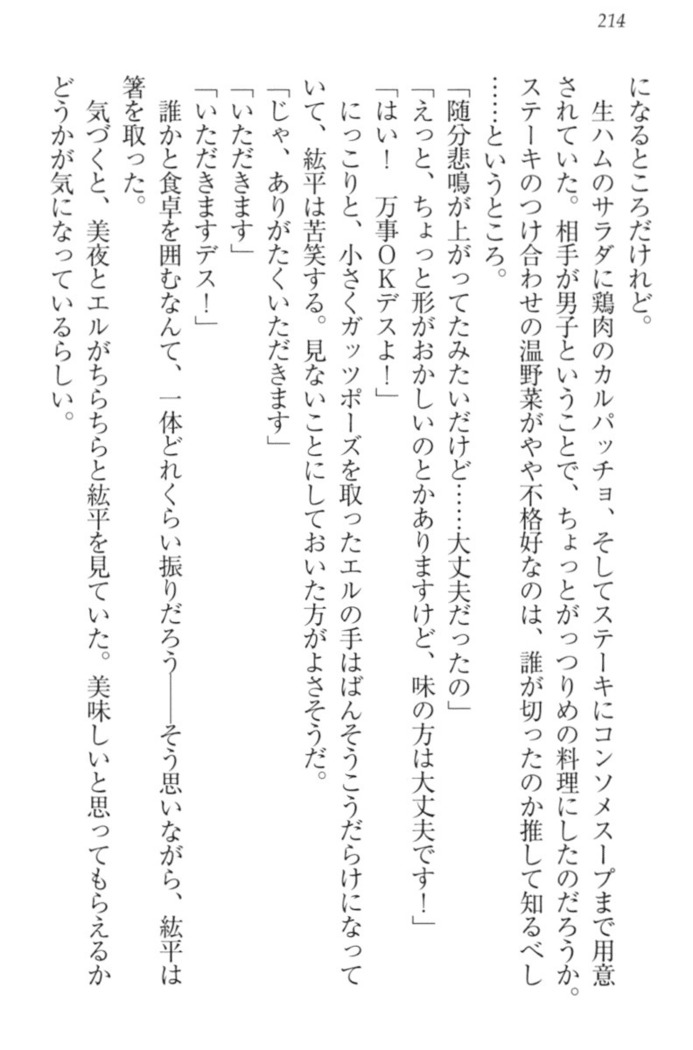 214
になるところだけれど。
　生ハムのサラダに鶏肉のカルパッチョ、そしてステーキにコンソメスープまで用意
されていた。相手が男子ということで、ちょっとがっつりめの料理にしたのだろうか。
ステーキのつけ合わせの温野菜がやや不格好なのは、誰が切ったのか推して知るべし
……というところ。
「随分悲鳴が上がってたみたいだけど……大丈夫だったの」
「えっと、ちょっと形がおかしいのとかありますけど、味の方は大丈夫です！」
「はい！　万事ＯＫデスよ！」
　にっこりと、小さくガッツポーズを取ったエルの手はばんそうこうだらけになって
いて、紘平は苦笑する。見ないことにしておいた方がよさそうだ。
「じゃ、ありがたくいただきます」
「いただきます」
「いただきますデス！」
　誰かと食卓を囲むなんて、一体どれくらい振りだろう――そう思いながら、紘平は
箸を取った。
　気づくと、美夜とエルがちらちらと紘平を見ていた。美味しいと思ってもらえるか
どうかが気になっているらしい。